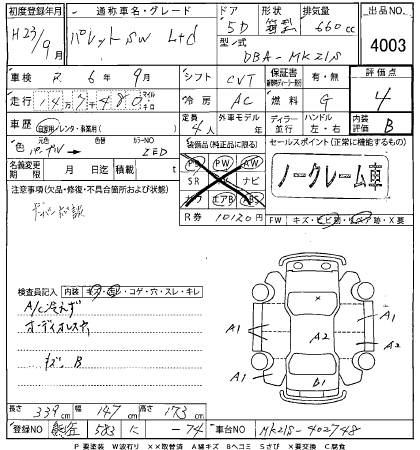 初度登録年月 通称車名・グレード ドア 形状 排気量 出品NO
H23/9月 パレットSW Ltd 5D 箱型 660cc 4003
型式 DBA-MK21S
車検 R 6年 9月 シフト CVT 保証書 有・無 評価点 4
走行 147480 マイル キロ 冷房 AC 燃料 G
車歴 自家用・レンタ・事業用( ) 定員 4人 外車モデル年 ディーラー 並行 ハンドル 左・右 内装評価 B
色 元色 パープル 色替 カラーNO ZED
装備品(純正品に限る) セールスポイント(正常に機能するもの)
PS PW AW
SR 革 ナビ
カワ エアB ABS
ノークレーム車
名義変更期限 月 日迄 積載量 t
R券 10120円
注意事項(欠品・修復・不具合箇所および状態) FW キズ・ヒビ割・リペア跡・X要
検査員記入 内装 キズ・汚れ・コゲ・穴・スレ・キレ
A/C冷えず
オーディオレス
キズ B
A1 A1 A2 A1 A2 B1
長さ 339cm 幅 147cm 高さ 173cm
登録NO 熊谷 583 に -74 車台NO MK21S-402748
P要塗装 W波有り ××取替済 A線キズ Bヘコミ Sさび X要交換 C腐食